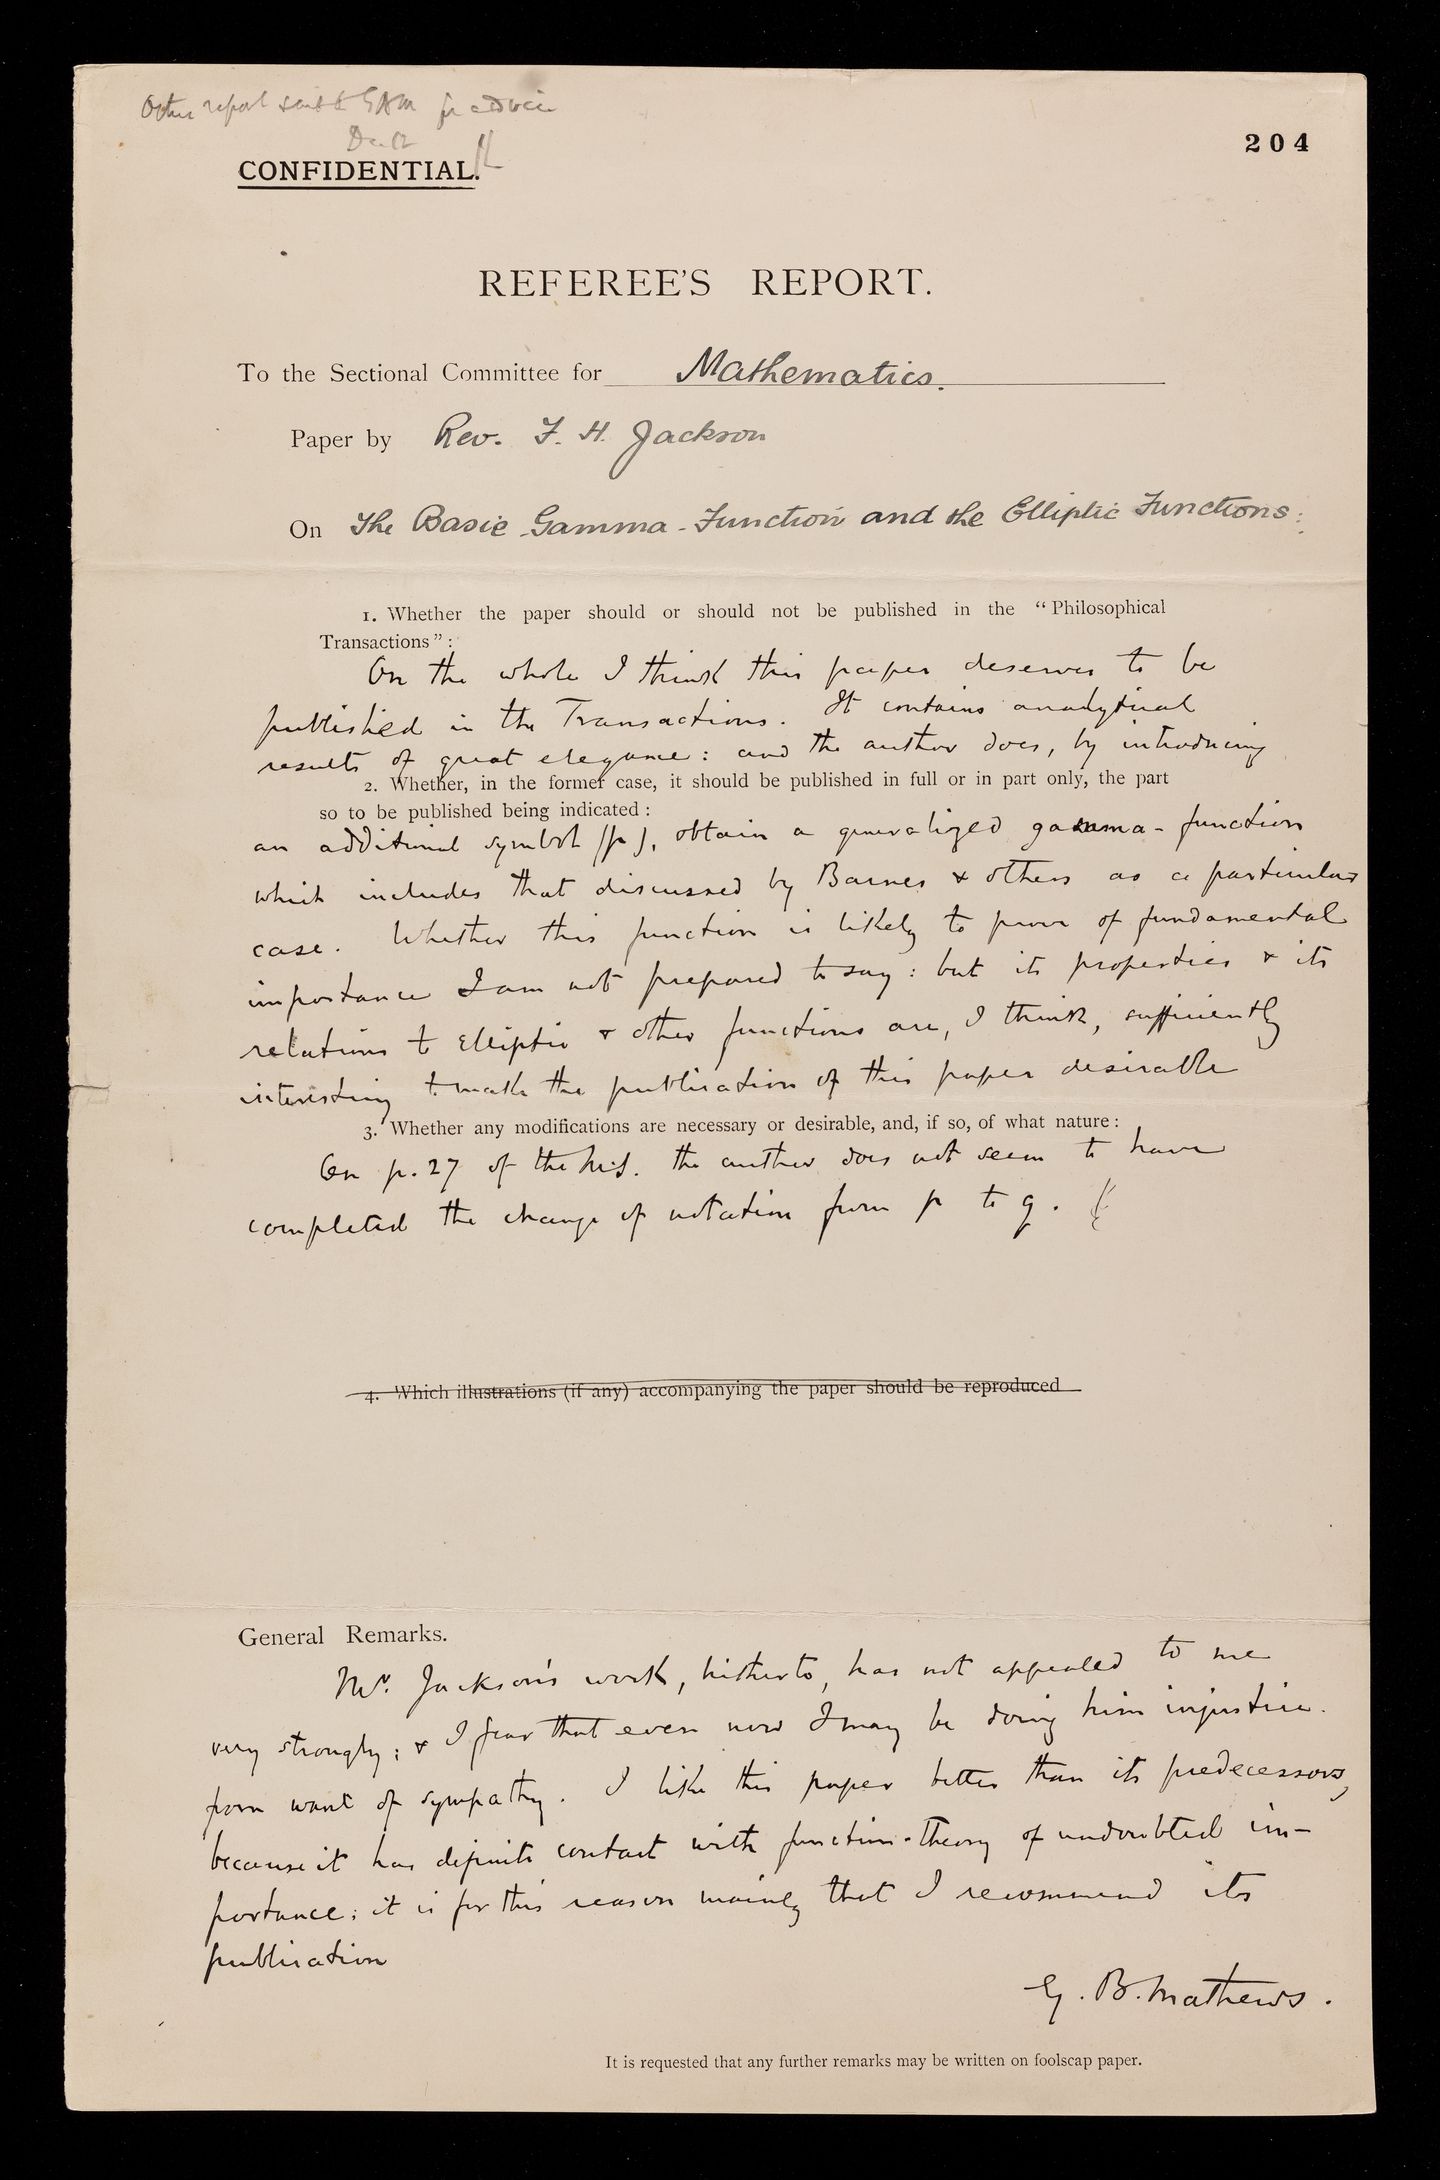 Other report sent to GBM for advice
Dec 12
CONFIDENTIAL.
204
REFEREE'S REPORT.
To the Sectional Committee for Mathematics.
Paper by Rev. F. H. Jackson
On The Basic Gamma-Function and the Elliptic Functions:
1. Whether the paper should or should not be published in the "Philosophical
Transactions":
On the whole I think this paper deserves to be
published in the Transactions. It contains analytical
results of great elegance: and the author does, by introducing
2. Whether, in the former case, it should be published in full or in part only, the part
so to be published being indicated:
an additional symbol (p), obtain a generalized gamma-function
which includes that discussed by Barnes & others as a particular
case. Whether this function is likely to prove of fundamental
importance I am not prepared to say: but its properties & its
relations to elliptic & other functions are, I think, sufficiently
interesting to make the publication of this paper desirable
3. Whether any modifications are necessary or desirable, and, if so, of what nature:
On p. 27 of the M.S. the author does not seem to have
completed the change of notation from p to q.
4. Which illustrations (if any) accompanying the paper should be reproduced
General Remarks.
Mr. Jackson's work, hitherto, has not appealed to me
very strongly; & I fear that even now I may be doing him injustice
from want of sympathy. I like this paper better than its predecessors,
because it has definite contact with function-theory of undoubted im-
portance; it is for this reason mainly that I recommend its
publication
G. B. Mathews.
It is requested that any further remarks may be written on foolscap paper.